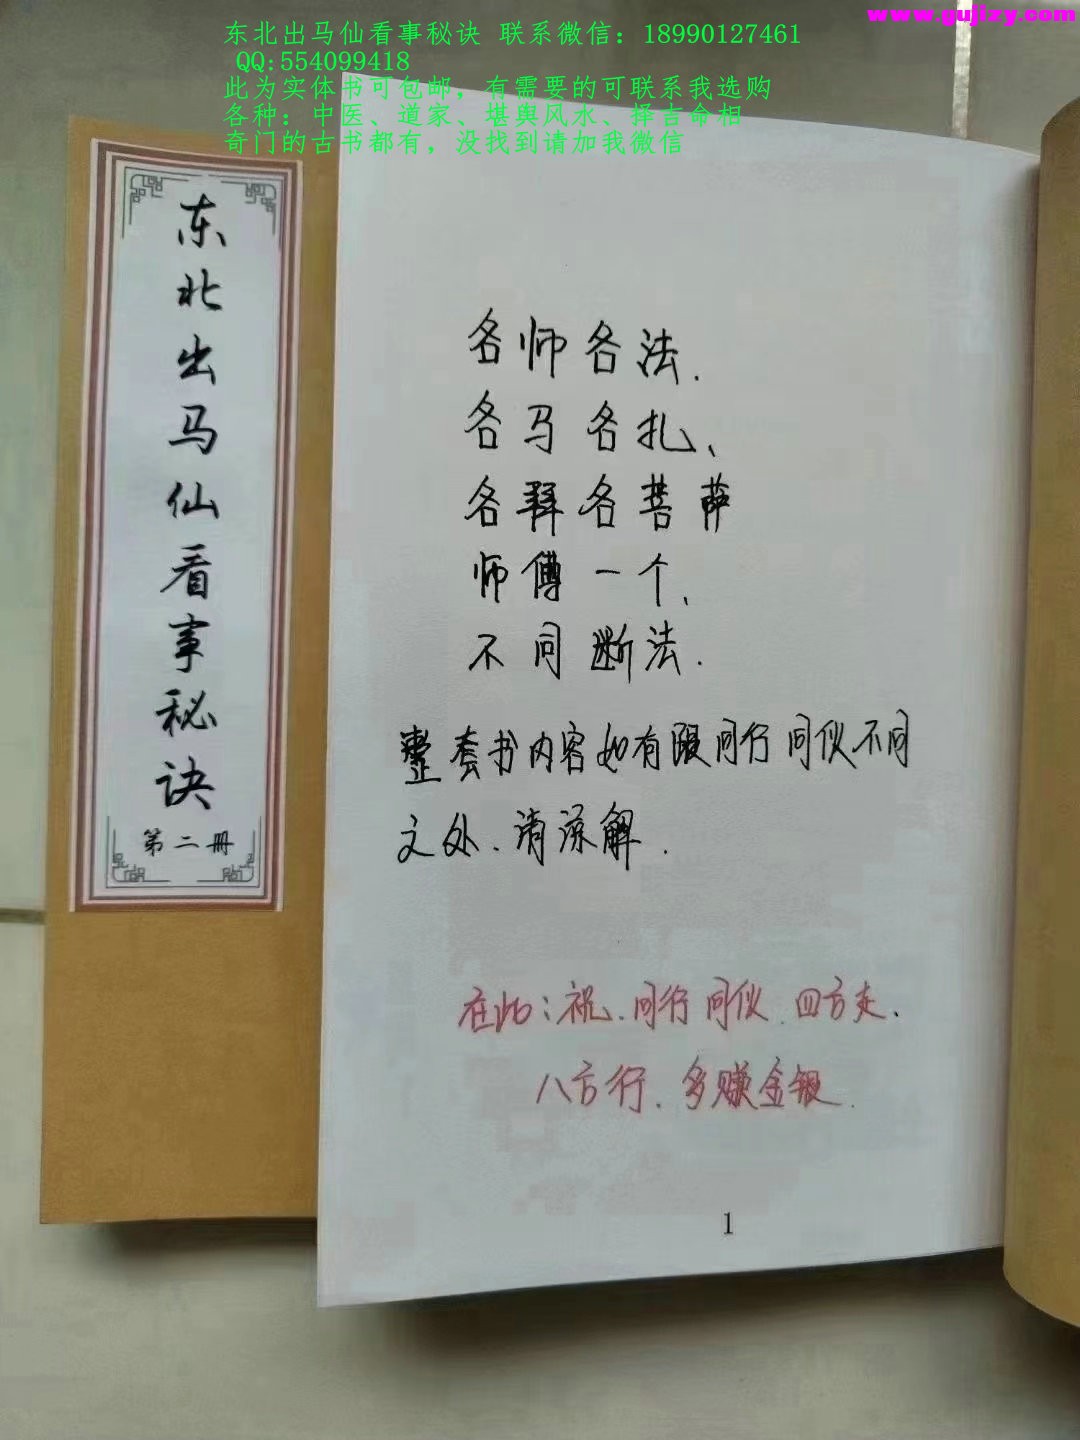 www.gujizy.com
东北出马仙看事秘诀 联系微信：18990127461
QQ:554099418
此为实体书可包邮，有需要的可联系我选购
各种：中医、道家、堪舆风水、择吉命相
奇门的古书都有，没找到请加我微信
东北出马仙看事秘诀
第二册
各师各法.
各马各扎、
各拜各菩萨
师傅一个、
不同断法.
整套书内容如有跟同行同伙不同
之处、请谅解.
在此：祝、同行同伙、四方走、
八方行、多赚金银.
1